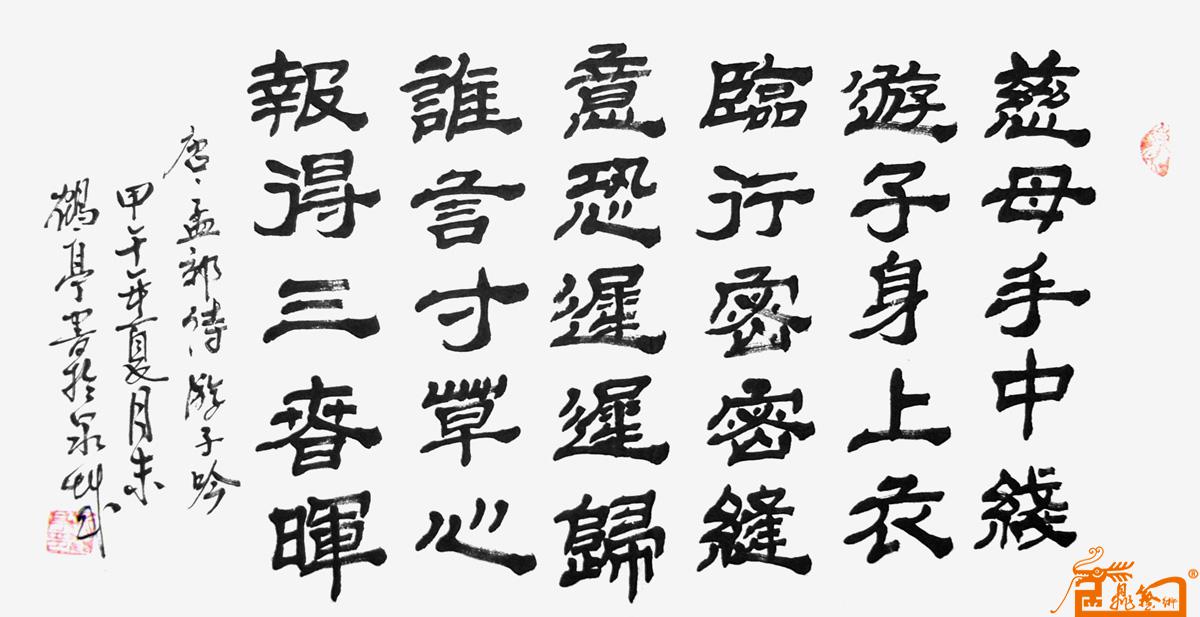 慈母手中綫
遊子身上衣
臨行密密縫
意恐遲遲歸
誰言寸草心
報得三春暉
唐、孟郊诗、游子吟
甲午年夏月末
鶴亭書於泉城